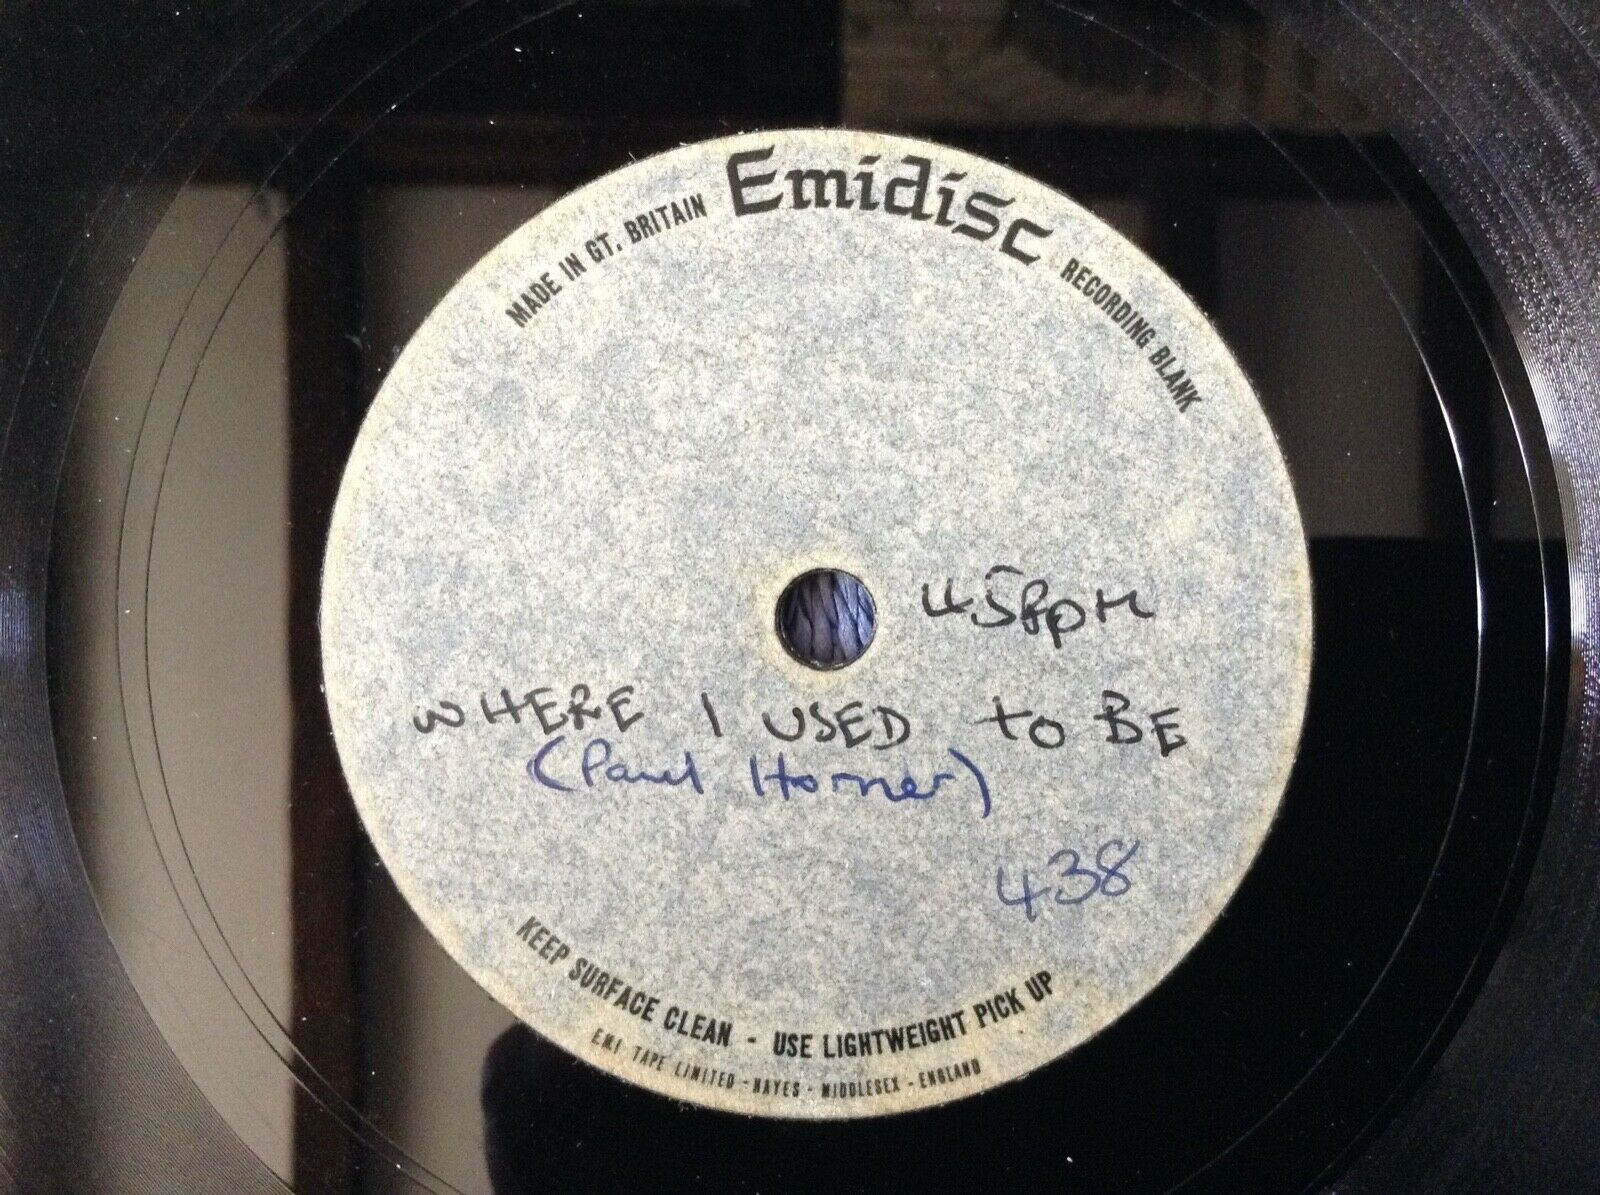 MADE IN GT. BRITAIN
Emidisc
RECORDING BLANK
45 rpm
WHERE I USED to BE
(Paul Horner)
438
KEEP SURFACE CLEAN - USE LIGHTWEIGHT PICK UP
E.M.I TAPE LIMITED - HAYES - MIDDLESEX - ENGLAND